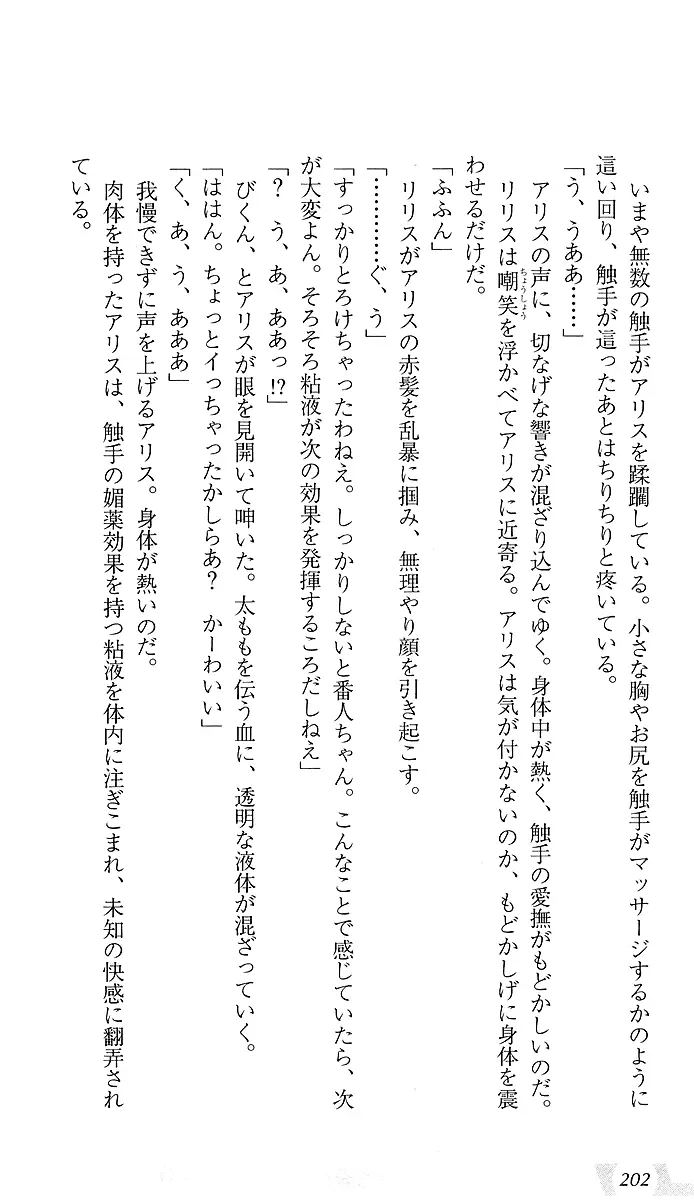 いまや無数の触手がアリスを蹂躙している。小さな胸やお尻を触手がマッサージするかのように
這い回り、触手が這ったあとはちりちりと疼いている。
「う、うああ……」
アリスの声に、切なげな響きが混ざり込んでゆく。身体中が熱く、触手の愛撫がもどかしいのだ。
リリスは嘲笑ちょうしょうを浮かべてアリスに近寄る。アリスは気が付かないのか、もどかしげに身体を震
わせるだけだ。
「ふふん」
リリスがアリスの赤髪を乱暴に掴み、無理やり顔を引き起こす。
「…………ぐ、う」
「すっかりとろけちゃったわねえ。しっかりしないと番人ちゃん。こんなことで感じていたら、次
が大変よん。そろそろ粘液が次の効果を発揮するころだしねえ」
「？　う、あ、ああっ!?」
びくん、とアリスが眼を見開いて呻いた。太ももを伝う血に、透明な液体が混ざっていく。
「ははん。ちょっとイっちゃったかしらあ？　かーわいい」
「く、あ、う、あああ」
我慢できずに声を上げるアリス。身体が熱いのだ。
肉体を持ったアリスは、触手の媚薬効果を持つ粘液を体内に注ぎこまれ、未知の快感に翻弄され
ている。
202